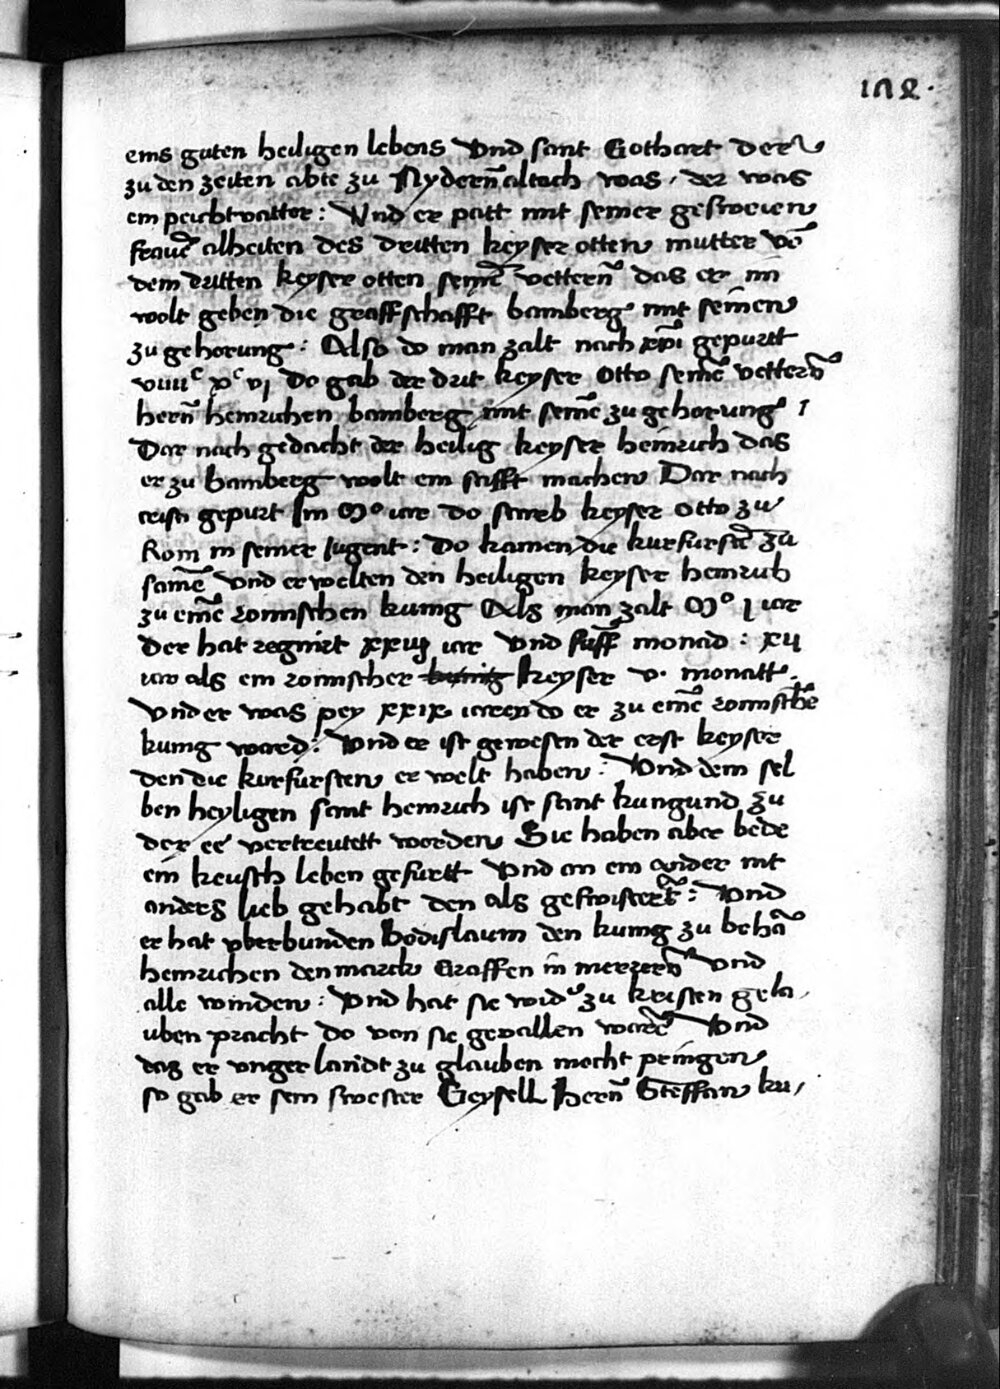 172.
eins guten heiligen lebens Vnd sant Gothart der
zu den zeiten abte zu Nydernaltach was, der was
ein peichtvatter: Vnd er patt mit seiner gesweien
frauē alheiten des dritten keyser otten mutter vō
dem dritten keyser otten seinē vettern̄ das er im
wolt geben die graffschafft bamberg mit seinen
zu gehorung: Also do man zalt nach xp̄i gepurtt
viiiiᶜ xᶜ vj Do gab der drit keyser Otto seinē vettern̄
hern̄ heinrichen bamberg mit seinē zu gehorung
Dar nach gedacht der heilig keyser heinrich das
er zu bamberg wolt ein stifft machen Dar nach
cristi gepurt Im Mº iar do starb keyser Otto zu
Rom in seiner Jugent: Do kamen die kurfurstē zu
samē vnd erwelten den heiligen keyser heinrich
zu einē romischen kunig Als man zalt Mº j iar
Der hat regnirt xxiij iar Vnd funff monad: xij
iar als ein romischer kunig keyser v. monatt.
Vnd er was pey xxix iaren do er zu einē romischē
kunig ward: Vnd er ist gewesen der erst keyser
den die kurfursten er welt haben: Vnd dem sel
ben heyligen sant heinrich ist sant kungund zu
der ee vertreutett worden Sie haben aber bede
ein keusch leben gefurtt Vnd an ein ander nit
anders lieb gehabt den als geswistert̄: Vnd
er hat vberbunden Bodislaum den kunig zu behā
heinrichen den marck Graffen in merrern̄ Vnd
alle winden: Vnd hat sie wid zu kristen gela,
uben pracht do von sie gevallen warē Vnd
das er vnger landt zu glauben mocht pringen
so gab er sein swester Geysell hern̄ Steffan ku,